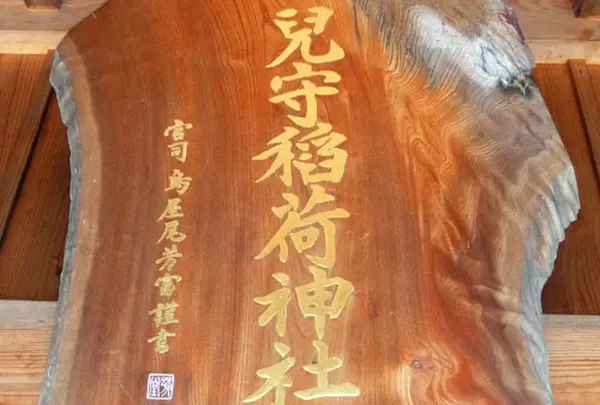 兒守稲荷神社
宮司 鳥屋尾芳雄謹書